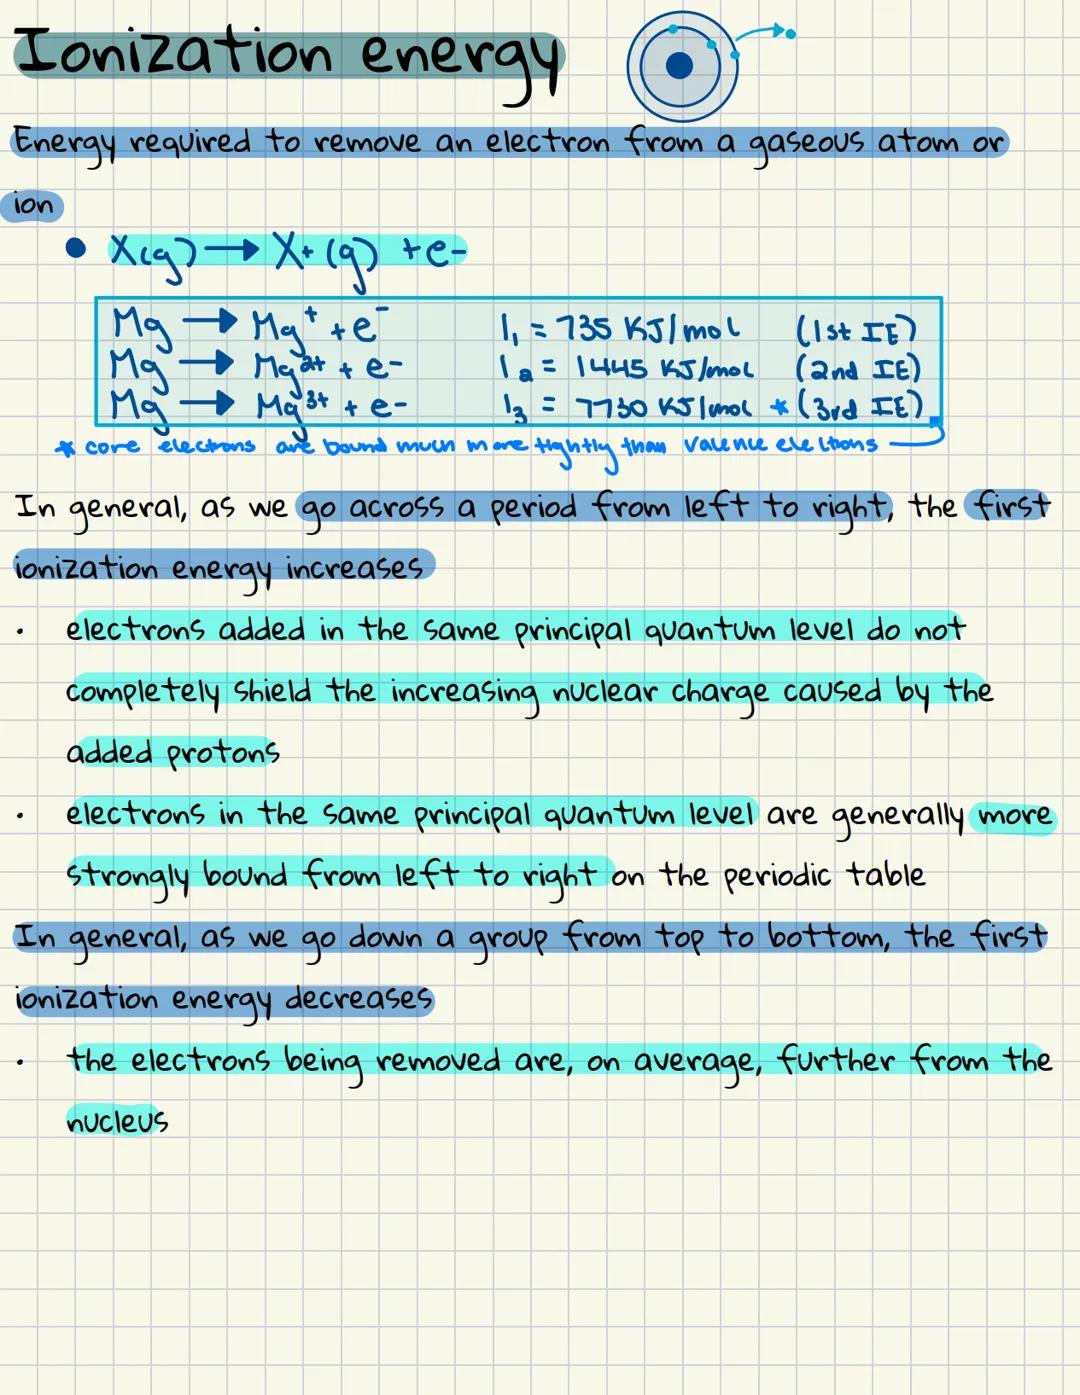 Ionization energy
Energy required to remove an electron from a gaseous atom or
ion
• X(g) → X+ (g) + e-
Mg → Mg⁺ + e⁻ I₁ = 735 KJ/mol (1st IE)
Mg → Mg²⁺ + e- I₂ = 1445 KJ/mol (2nd IE)
Mg → Mg³⁺ + e- I₃ = 7730 KJ/mol * (3rd IE)
* core electrons are bound much more tightly than valence electrons
In general, as we go across a period from left to right, the first
ionization energy increases
· electrons added in the same principal quantum level do not
completely shield the increasing nuclear charge caused by the
added protons
· electrons in the same principal quantum level are generally more
strongly bound from left to right on the periodic table
In general, as we go down a group from top to bottom, the first
ionization energy decreases
· the electrons being removed are, on average, further from the
nucleus